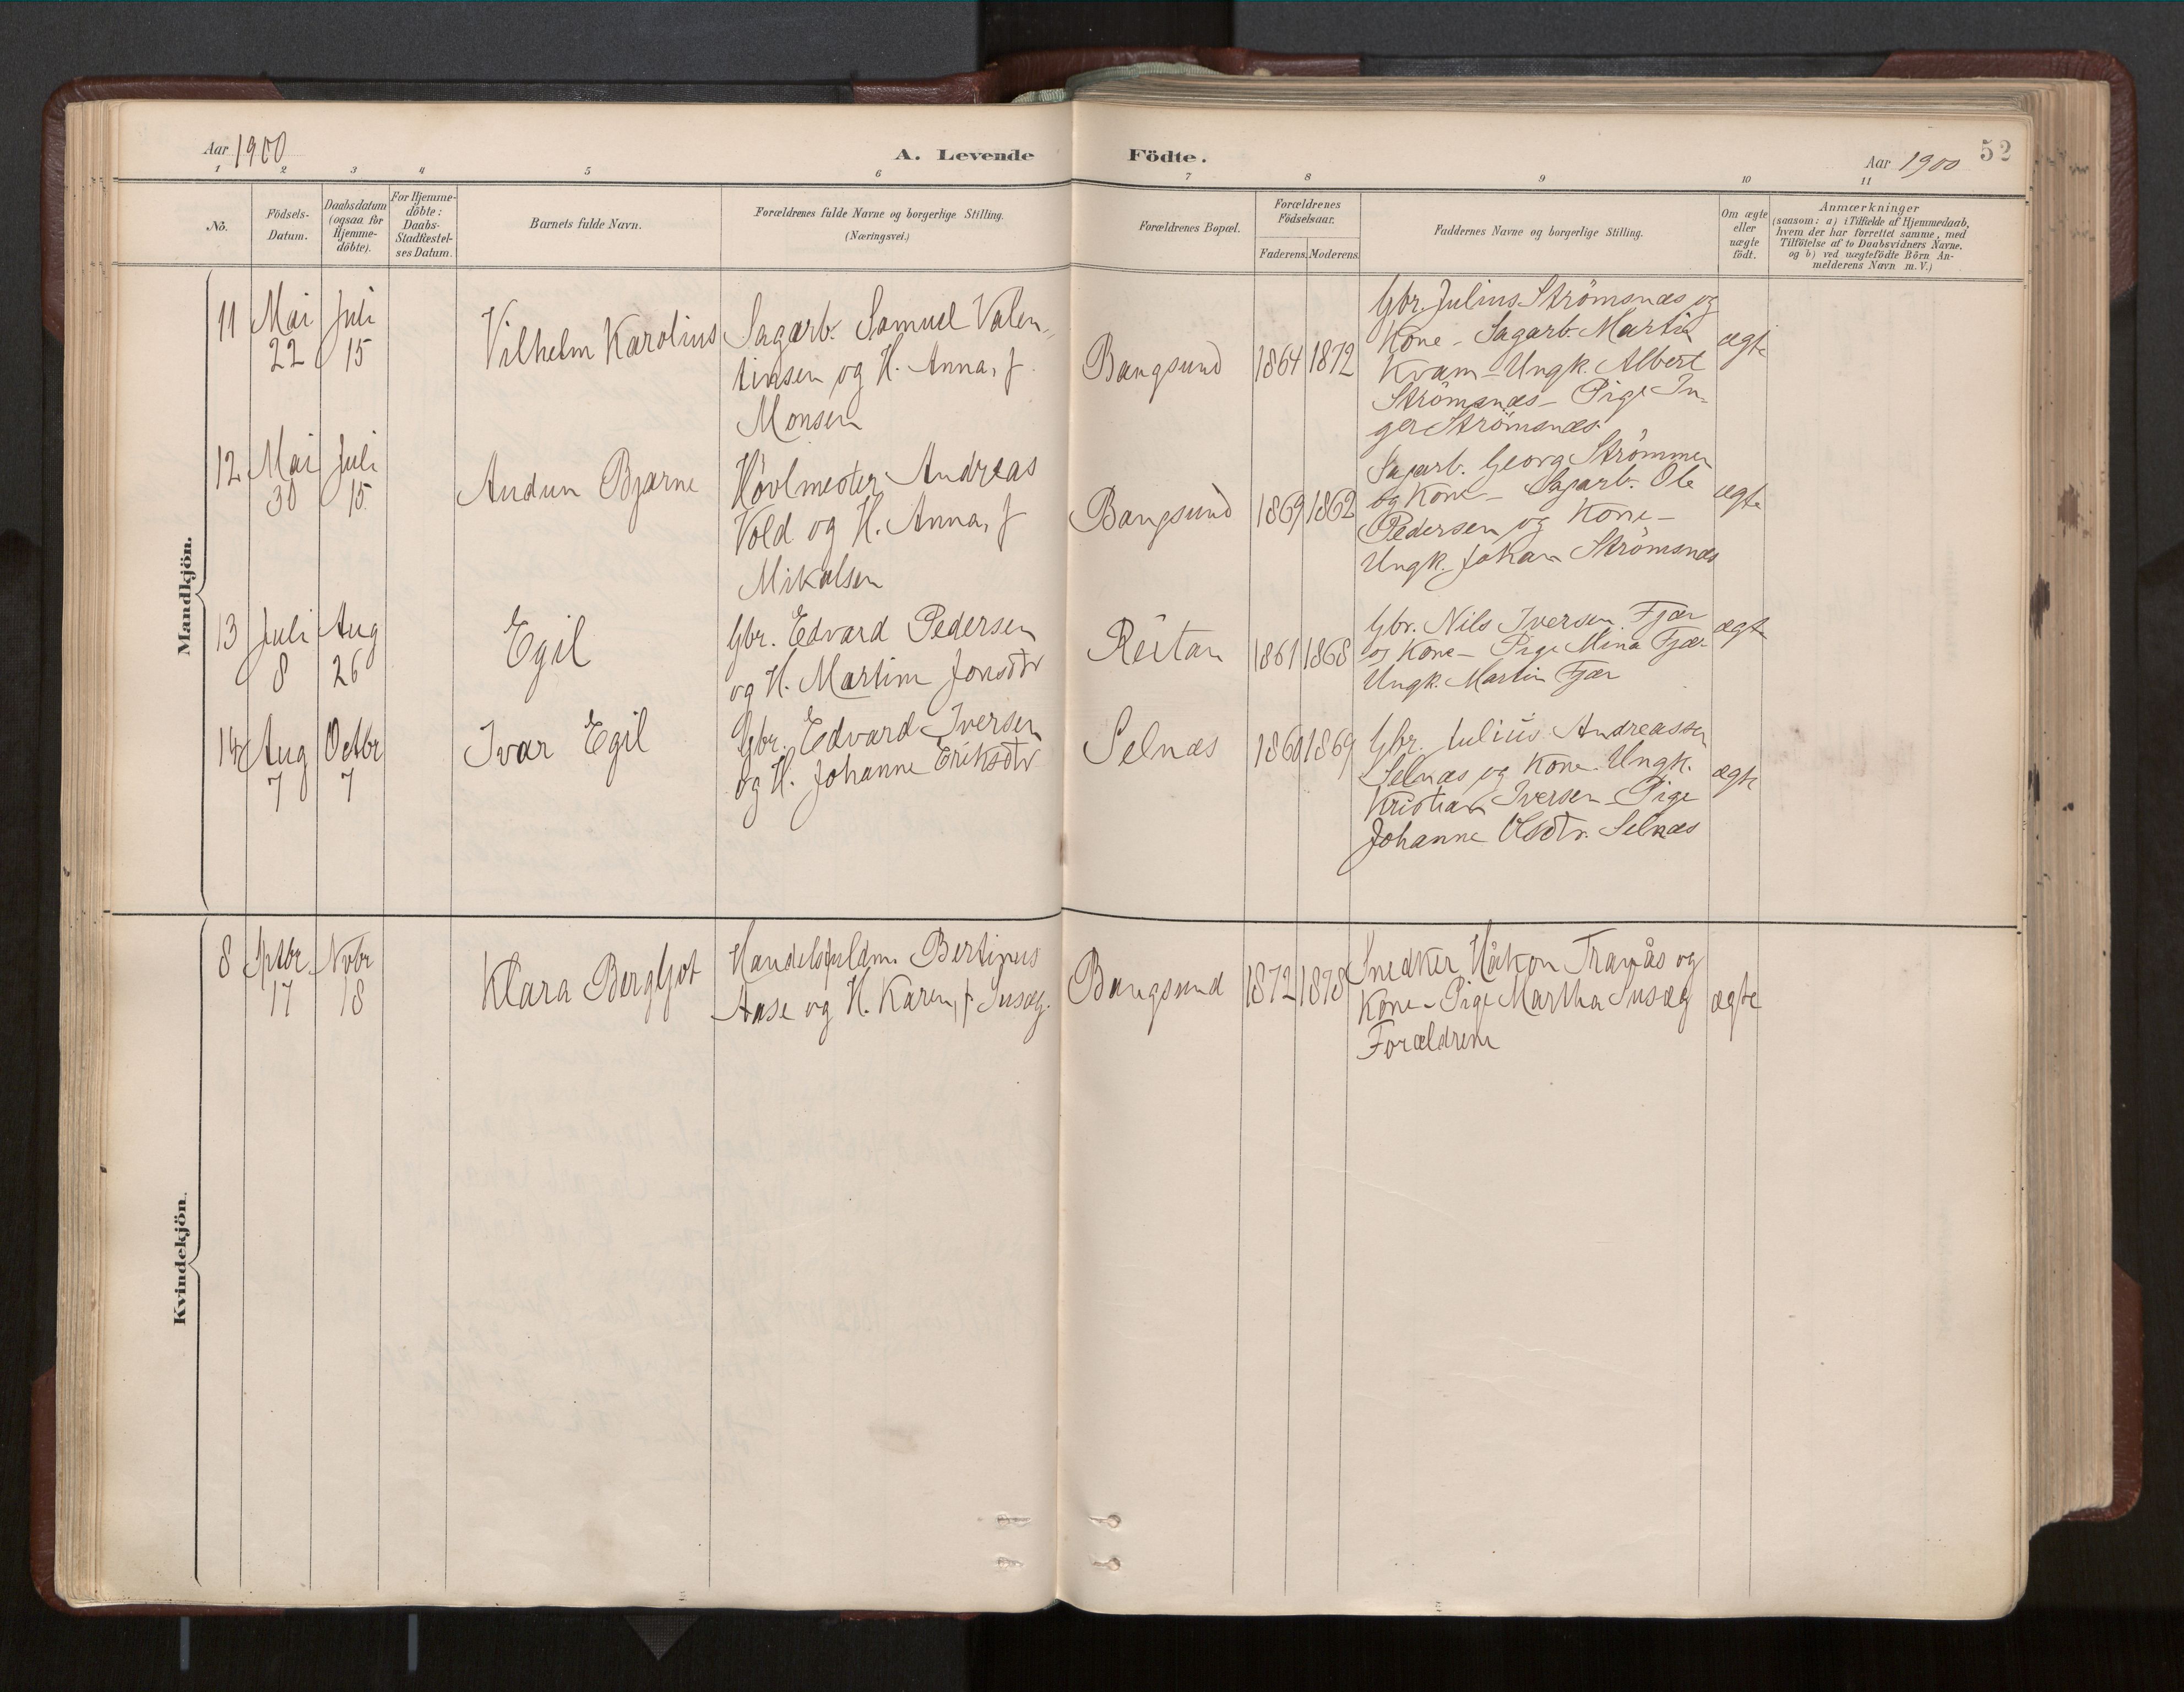 Aar 1900
A. Levende Födte.
Aar 1900
52
1 2 3 4 5 6 7 8 9 10 11
No.
Födsels-
Datum.
Daabsdatum
(ogsaa for
Hjemme-
döbte).
For Hjemme-
döbte:
Daabs-
Stadfæstel-
ses Datum.
Barnets fulde Navn.
Forældrenes fulde Navne og borgerlige Stilling.
(Næringsvei.)
Forældrenes Bopæl.
Forældrenes
Födselsaar.
Faderens. Moderens.
Faddernes Navne og borgerlige Stilling.
Om ægte
eller
uægte
födt.
Anmærkninger
(saasom: a) i Tilfælde af Hjemmedaab,
hvem der har forrettet samme, med
Tilföielse af to Daabsvidners Navne.
og b) ved uægtefödte Börn An-
melderens Navn m.V.)
Mandkjön.
11
Mai
22
Juli
15
Vilhelm Karolius
Sagarb. Samuel Valen-
tinsen og H. Anna, f.
Monsen
Bangsund
1864
1872
Gbr. Julius Strömsnæs og
Kone - Sagarb. Martin
Kvam - Ungk. Albert
Strömsnæs - Pige In-
ger Strömsnæs
ægte
12
Mai
30
Juli
15
Audun Bjarne
Hövlmester Andreas
Vold og H. Anna, f
Mikalsen
Bangsund
1869
1862
Sagarb. Georg Strömmen
og Kone - Sagarb. Ole
Pedersen og Kone -
Ungk. Johan Strömsnæs
ægte
13
Juli
8
Aug
26
Egil
Gbr. Edvard Pedersen
og H. Martine Jonsdtr
Reitan
1861
1868
Gbr. Nils Iversen Fjær
og Kone - Pige Mina Fjær
Ungk. Martin Fjær
ægte
14
Aug
7
Octbr
7
Ivar Egil
Gbr. Edvard Iversen
og H. Johanne Eriksdtr
Selnæs
1860
1869
Gbr. Julius Andreassen
Selnæs og Kone. Ungk.
Kristian Iversen - Pige
Johanne Olsdtr. Selnæs
ægte
Kvindekjön.
8
Sptbr.
17
Nvbr
18
Klara Bergljot
Handelsfuldm. Bertinus
Aase og H. Karen, f Susæg.
Bangsund
1872
1878
Snedker Håkon Tranås og
Kone - Pige Martha Susæg
Forældrene
ægte